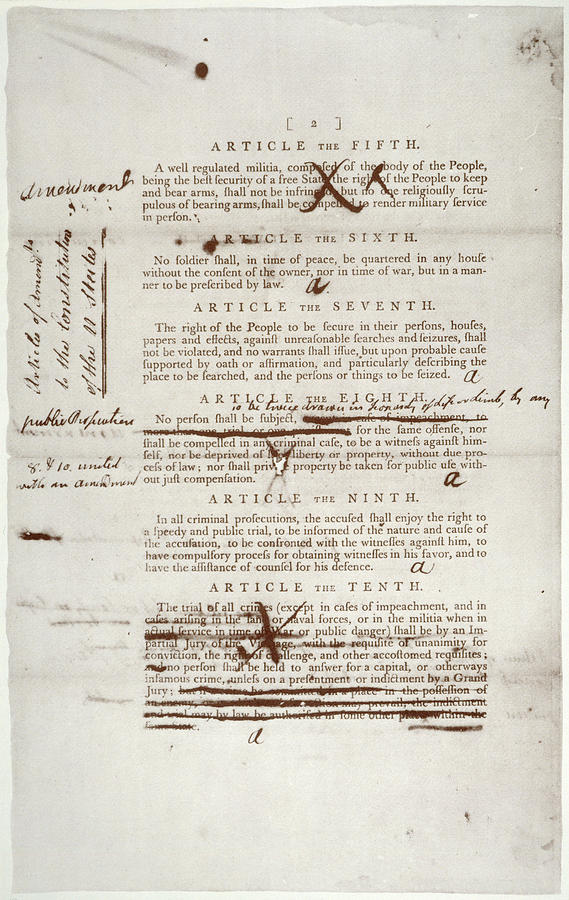 [ 2 ]
ARTICLE THE FIFTH.
A well regulated militia, composed of the body of the People,
being the beſt security of a free State, the right of the People to keep
and bear arms, ſhall not be infringed, but no one religiouſly ſcru-
pulous of bearing arms, ſhall be compelled to render military ſervice
in perſon.
Amendment
ARTICLE THE SIXTH.
No ſoldier ſhall, in time of peace, be quartered in any houſe
without the conſent of the owner, nor in time of war, but in a man-
ner to be preſcribed by law.
a
Article of Amend.ts
to the Constitution
of the U States
ARTICLE THE SEVENTH.
The right of the People to be secure in their perſons, houſes,
papers and effects, againſt unreaſonable ſearches and ſeizures, ſhall
not be violated, and no warrants ſhall iſſue, but upon probable cauſe
ſupported by oath or affirmation, and particularly deſcribing the
place to be ſearched, and the perſons or things to be ſeized.
a
ARTICLE THE EIGHTH.
to be twice in jeopardy of life or limb, by any
public Prosecution
No perſon ſhall be ſubject, caſe of impeachment, to
more than one trial or one for the same offenſe, nor
ſhall be compelled in any criminal caſe, to be a witneſs againſt him-
ſelf, nor be deprived of liberty or property, without due pro-
ceſs of law; nor ſhall private property be taken for public uſe with-
out juſt compenſation.
a
8. & 10. united
with an amendment
ARTICLE THE NINTH.
In all criminal proſecutions, the accuſed ſhall enjoy the right to
a ſpeedy and public trial, to be informed of the nature and cauſe of
the accuſation, to be confronted with the witneſſes againſt him, to
have compulſory proceſs for obtaining witneſſes in his favor, and to
have the aſſiſtance of counſel for his defence.
a
ARTICLE THE TENTH.
The trial of all crimes (except in caſes of impeachment, and in
caſes ariſing in the land or naval forces, or in the militia when in
actual ſervice in time of War or public danger) ſhall be by an Im-
partial Jury of the Vicinage, with the requiſite of unanimity for
conviction, the right of challenge, and other accoſtomed requiſites;
and no perſon ſhall be held to anſwer for a capital, or otherways
infamous crime, unleſs on a preſentment or indictment by a Grand
Jury; but if a crime be committed in a place in the poſſeſſion of
an enemy, may prevail, the indictment
and trial may by law be authoriſed in ſome other place within the
ſame State.
a